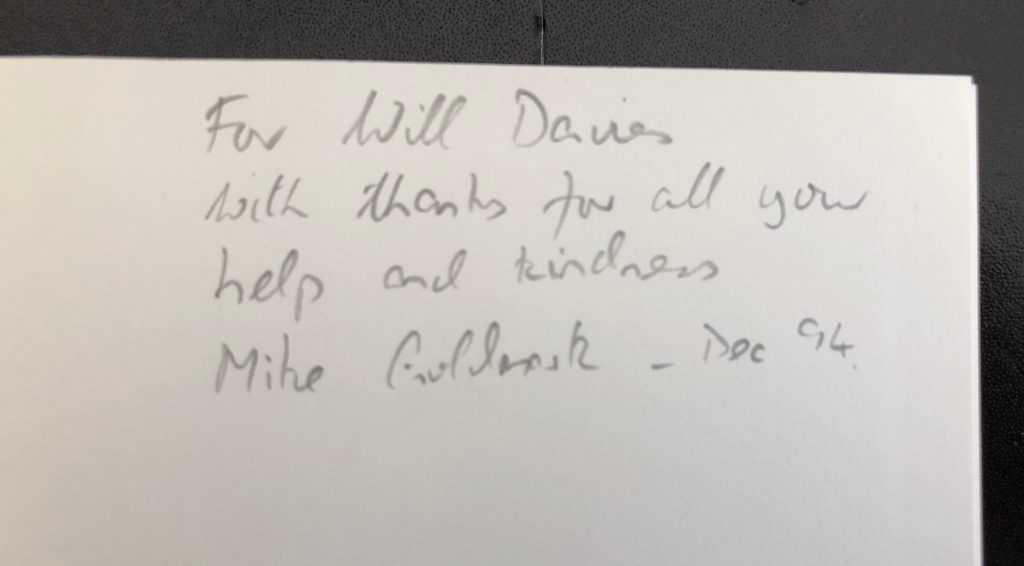 For Will Davies
with thanks for all your
help and kindness
Mike Goldmark – Dec 94.